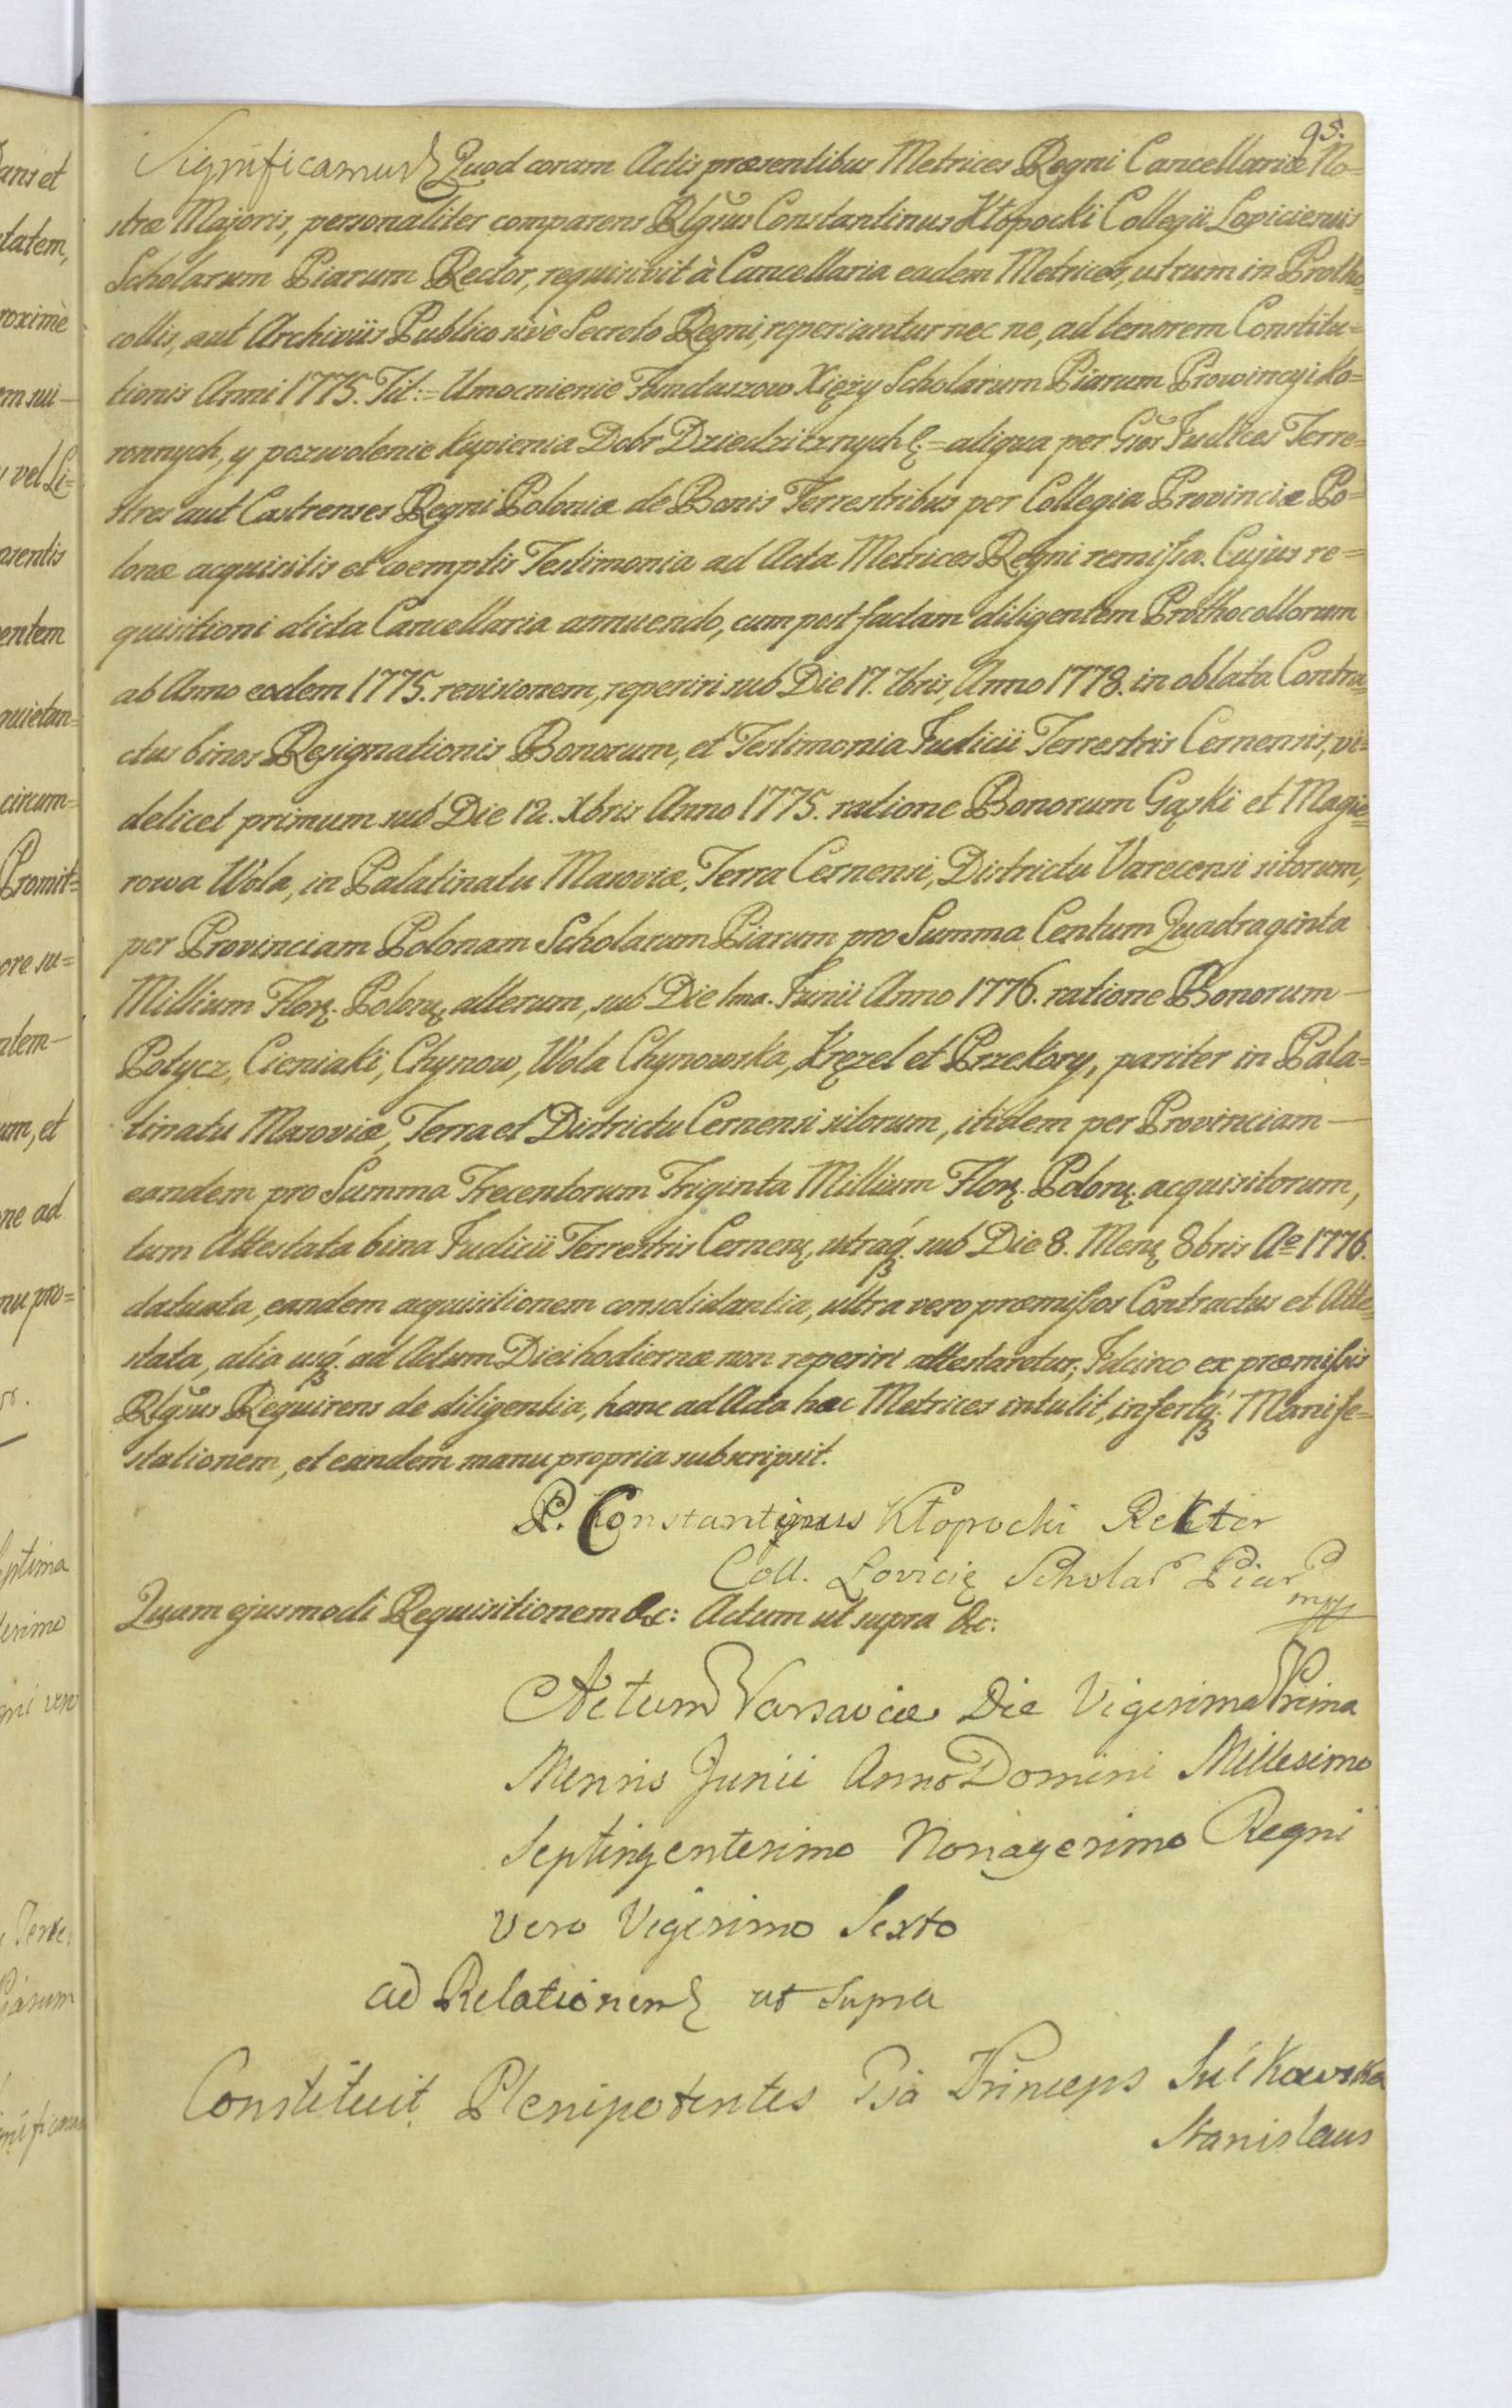 95.
Significamus Quod coram Actis præsentibus Metrices Regni Cancellariæ No=
stræ Majoris, personaliter comparens Rlgsus Constantinus Kłopocki Collegii Loviciensis
Scholarum Piarum Rector, requisivit à Cancellaria eadem Metrices, utrum in Protho=
collis, aut Archiviis Publico sivè Secreto Regni, reperiantur nec ne, ad tenorem Constitu=
tionis Anni 1775. Tit:= Umocnienie Funduszow Xięży Scholarum Piarum Prowincyi Ko=
ronnych, y pozwolenie kupienia Dobr Dziedzicznych &= aliqua per Gsos Judices Terre=
stres aut Castrenses Regni Poloniæ de Bonis Terrestribus per Collegia Provinciæ Po=
lonæ acquisitis et coemptis Testimonia ad Acta Metrices Regni remissa. Cujus re=
quisitioni dicta Cancellaria annuendo, cum post factam diligentem Prothocollorum
ab Anno eodem 1775. revisionem, reperiri sub Die 17. 7bris, Anno 1778. in oblata Contra=
ctus binos Resignationis Bonorum, et Testimonia Judicii Terrestris Cernensis, vi=
delicet primum sub Die 12. Xbris Anno 1775. ratione Bonorum Gąski et Magie=
rowa Wola, in Palatinatu Masoviæ, Terra Cernensi, Districtu Varecensi sitorum,
per Provinciam Polonam Scholarum Piarum pro Summa Centum Quadraginta
Millium Flor. Polon. alterum, sub Die 1ma. Junii Anno 1776. ratione Bonorum —
Potycz, Cieniaki, Chynow, Wola Chynowska, Kręzel et Przekory, pariter in Pala=
tinatu Masoviæ, Terra et Districtu Cernensi sitorum, itidem per Provinciam —
eandem pro Summa Trecentorum Triginta Millium Flor. Polon. acquisitorum,
tum Attestata bina Judicii Terrestris Cernen. utraq. sub Die 8. Mens 8bris Ao 1776.
datuata, eandem acquisitionem consolidantia, ultra vero præmissos Contractus et Atte=
stata, alia usq. ad Actum Diei hodiernæ non reperiri attestaretur; Idcirco ex præmissis
Rlgsus Requirens de diligentia, hanc ad Acta hæc Metrices intulit, infertq. Manife=
stationem, et eandem manu propria subscripsit.
P. Constantinus Kłopocki Rektor
Coll. Lovicię Scholar Piar
mpp
Quam ejusmodi Requisitionem &c: Actum ut supra &c:
Actum Varsaviæ Die Vigesima Prima
Mensis Junii Anno Domini Millesimo
Septingentesimo Nonagesimo Regni
Vero Vigesimo Sexto
ad Relationem ut supra
Constituit Plenipotentes Psa Princeps Sułkowska
Stanislaus